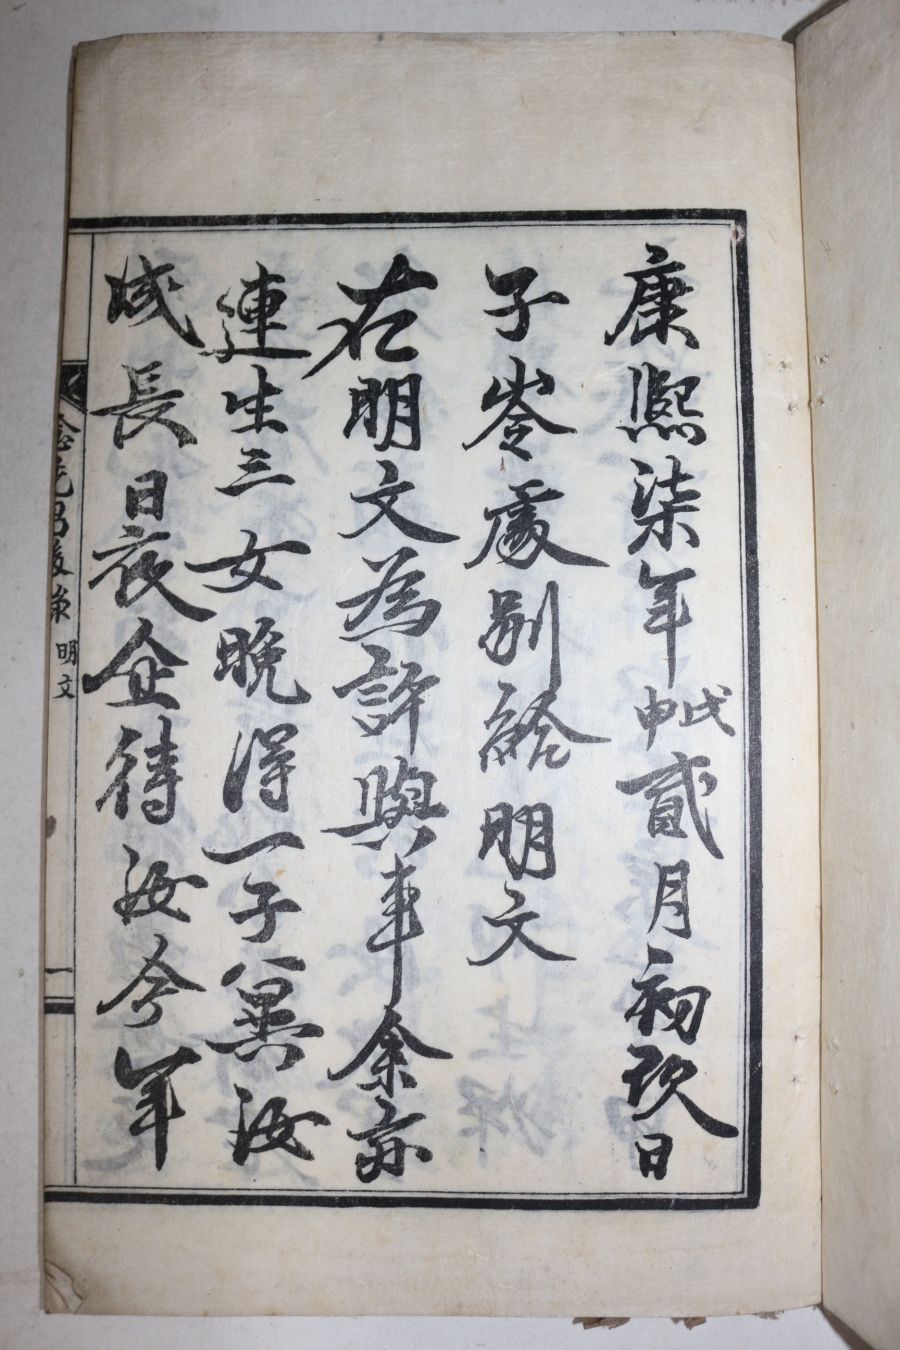 康熙柒年戊申貳月初玖日
子岺處別給明文
右明文爲許與事余亦
連生三女晩得一子冀汝
成長日夜企待汝今年
明文
一